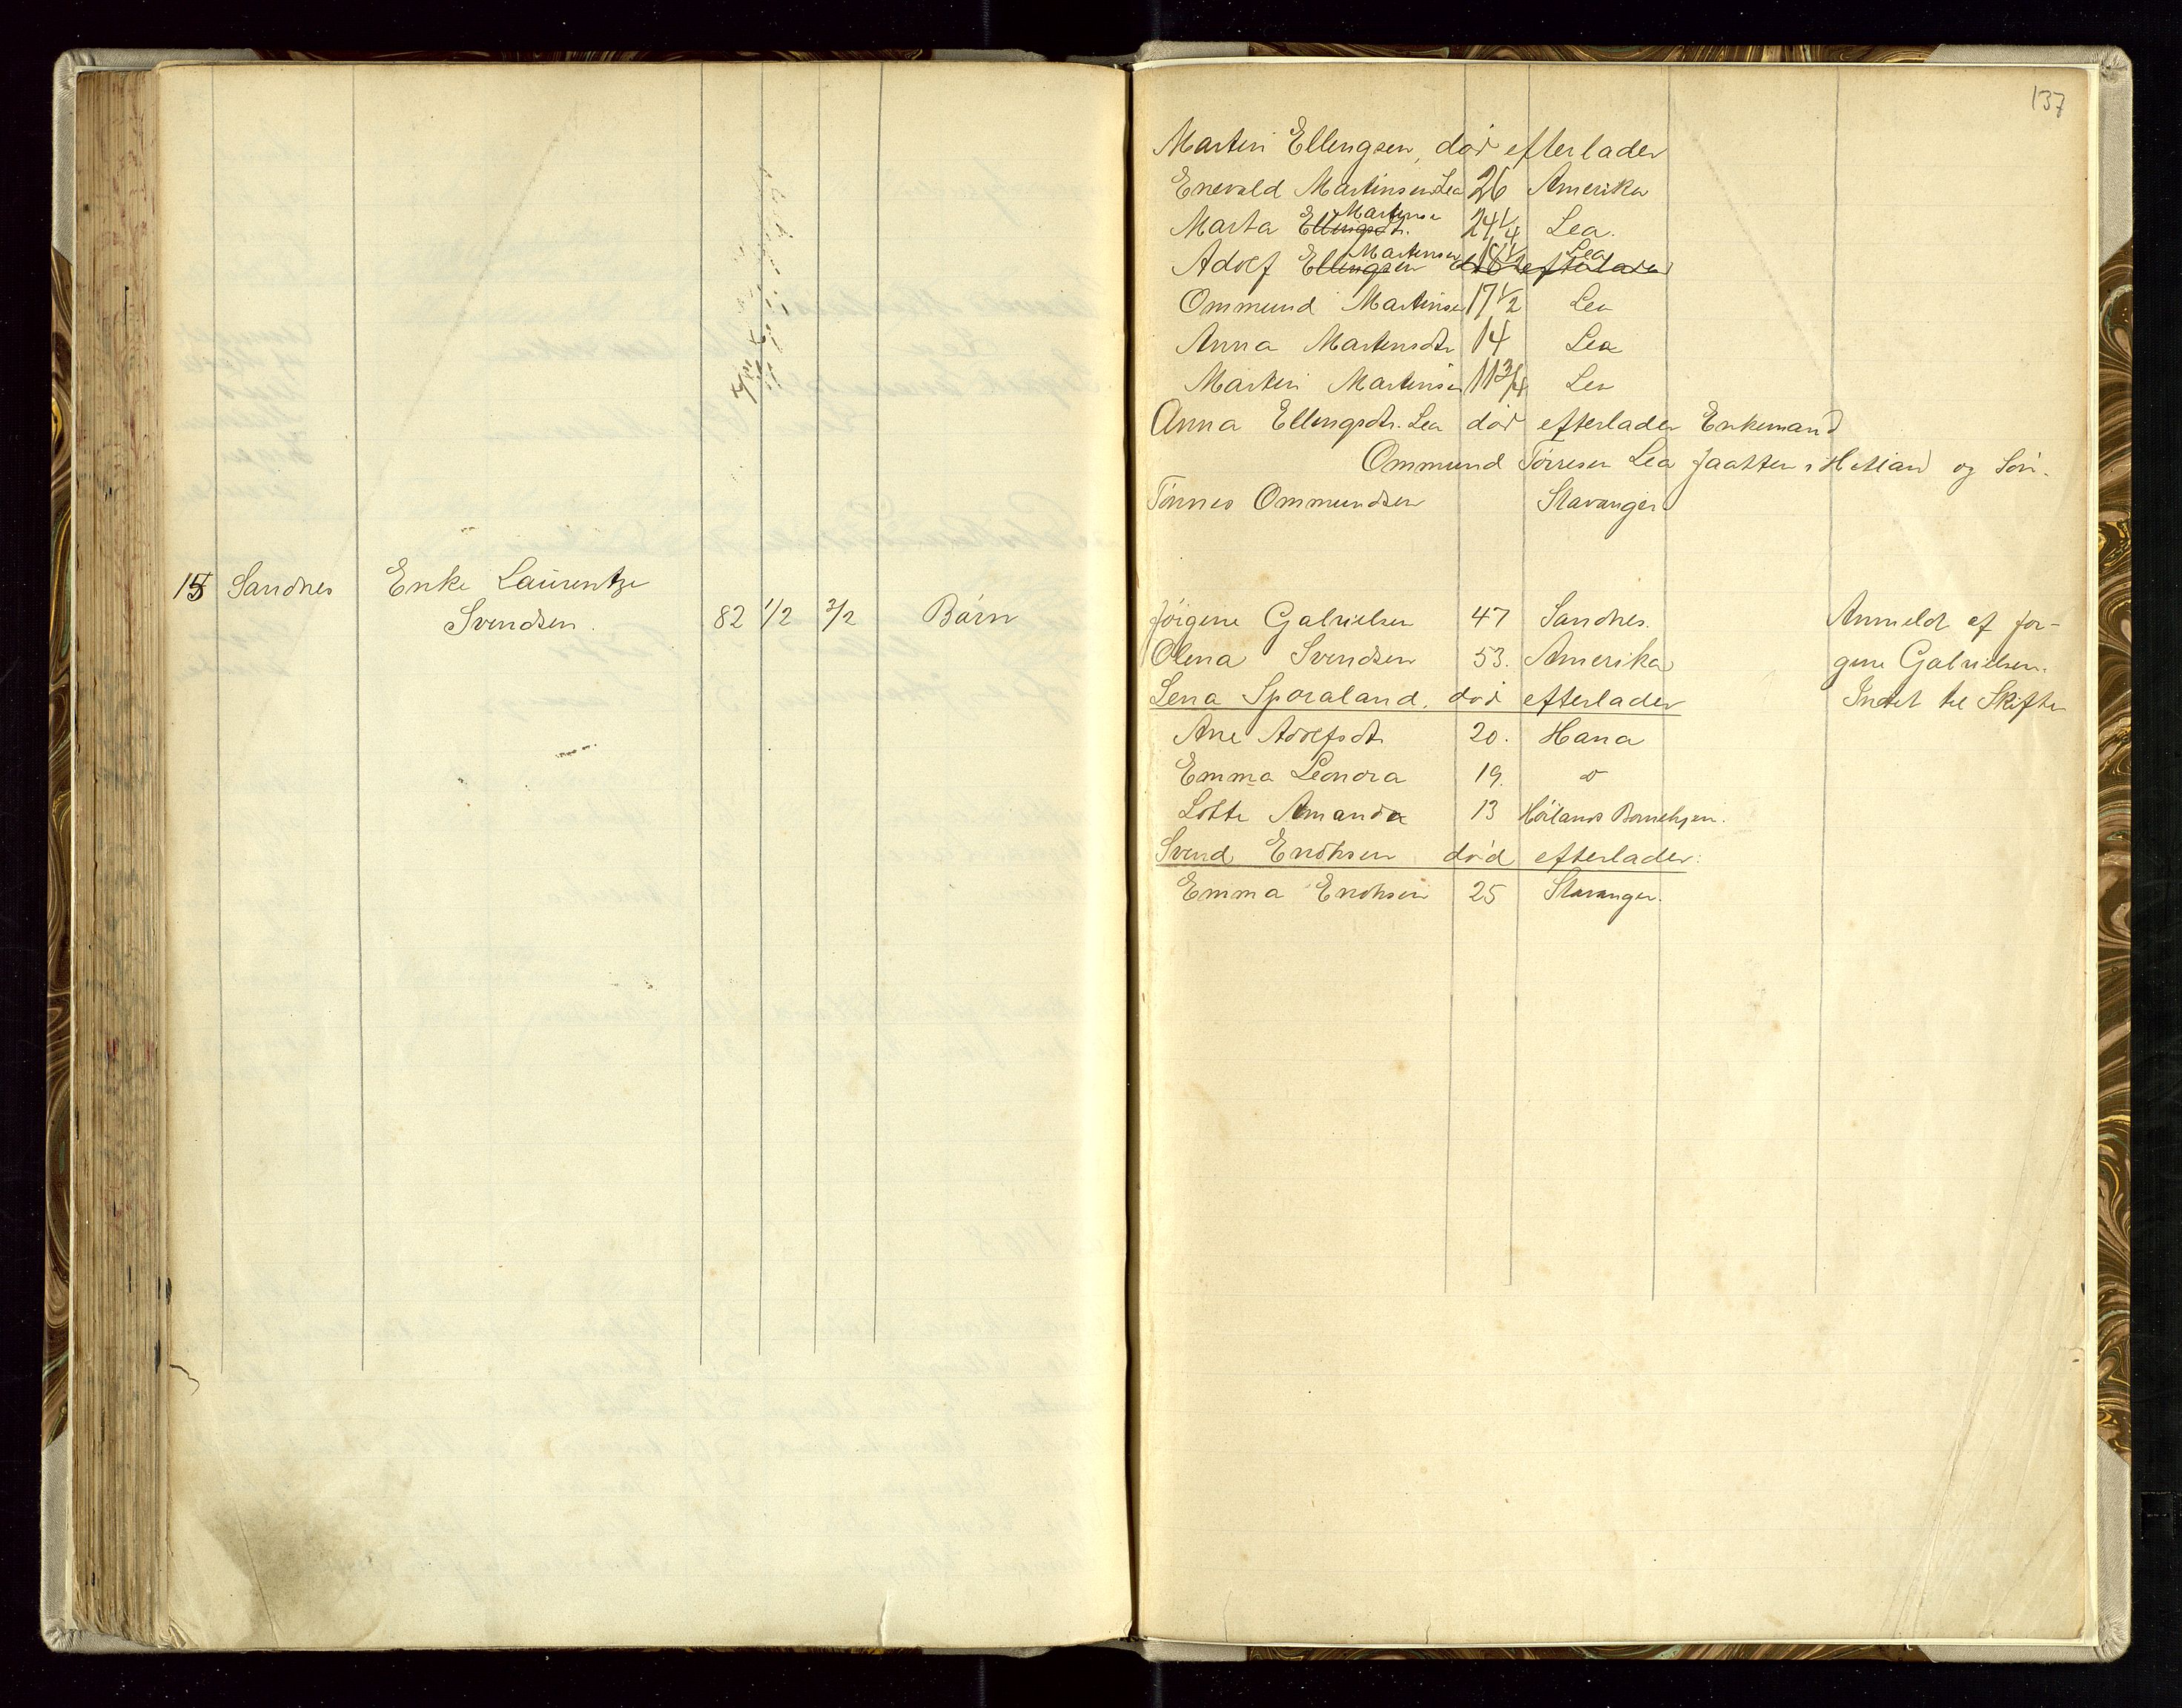 15 Sandnes Enke Laurentze
Svendsen. 82 1/2 3/2 Børn
137
Martin Ellingsen, død efterlader
Enevald Martinsen Lea 26 Amerika
Marta Ellingsdt. Martinsd 24 1/4 Lea.
Adolf Ellingsen Martinsen død efterlader Lea
Ommund Martinsen 17 1/2 Lea
Anna Martensdtr 14 Lea
Martin Martinsen 11 3/4 Lea
Anna Ellingsdtr. Lea død efterlader Enkemand
Ommund Tørresen Lea Jaatten i Hetland og Søn.
Tønnes Ommundsen Stavanger
Jørgine Gabrielsen 47 Sandnes. Anmeldt af Jør-
Olena Svendsen 53. Amerika gine Gabrielsen.
Lena Sporaland, død efterlader Intet til Skifte
Ane Adolfsdt. 20. Hana
Emma Leonora 19. do
Lotte Amanda 13 Hølands Børnehjem.
Svend Enoksen død efterlader:
Emma Enoksen 25 Stavanger.